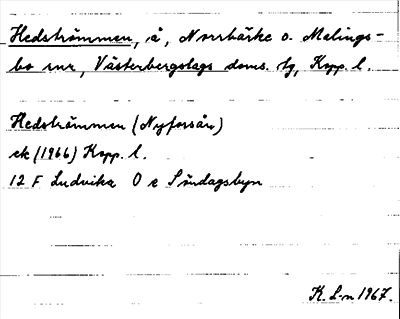 Hedströmmen, å, Norrbärke o. Malings-
bo snr, Västerbergslags doms. tg, Kopp. l.
Hedströmmen (Nyforsån)
ek (1966) Kopp. l.
12 F Ludvika 0 e Söndagsbyn
K. L-n 1967.